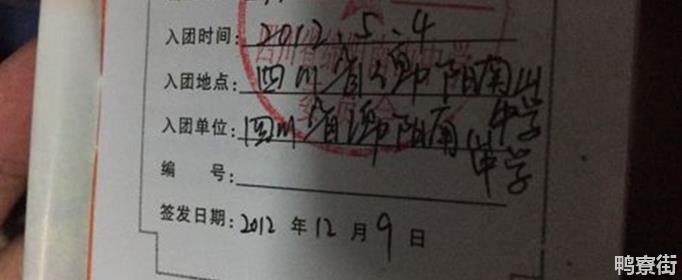 入团时间: 2012.5.4
入团地点: 四川省绵阳南山中学
入团单位: 四川省绵阳南山中学
编 号:
签发日期: 2012 年 12 月 9 日
鸭寮街